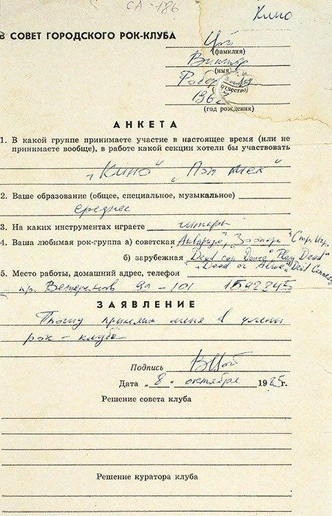 СА-186
Кино
В СОВЕТ ГОРОДСКОГО РОК-КЛУБА
Цой
(фамилия)
Виктор
(имя)
(отчество)
1962
(год рождения)
АНКЕТА
1. В какой группе принимаете участие в настоящее время (или не
принимаете вообще), в работе какой секции хотели бы участвовать
"Кино"
2. Ваше образование (общее, специальное, музыкальное)
среднее
3. На каких инструментах играете гитара
4. Ваша любимая рок-группа а) советская Аквариум, Зоопарк
б) зарубежная Dead can Dance "Play Dead"
"Dead or Alive"
5. Место работы, домашний адрес, телефон
пр. Ветеранов 101
ЗАЯВЛЕНИЕ
Прошу принять меня в члены
рок-клуба
Подпись ВЦой
Дата "8" октября 1985г.
Решение совета клуба
Решение куратора клуба